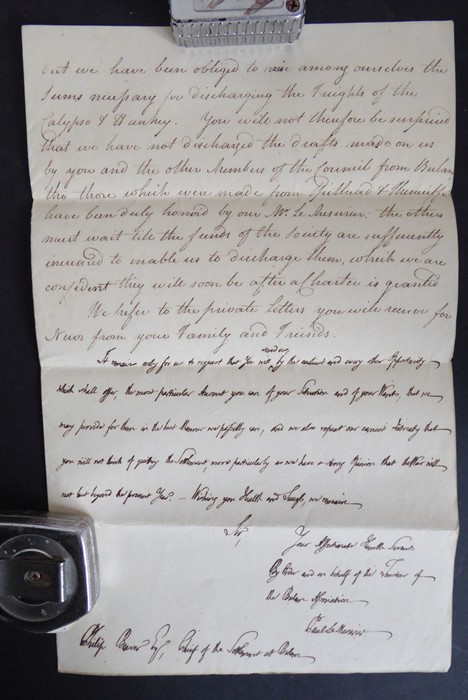 but we have been obliged to raise among ourselves the
Sums necessary for discharging the Freights of the
Calypso & Hankey. You will not therefore be surprized
that we have not discharged the drafts made on us
by you and the other Members of the Council from Bulam
tho those which were made from Spithead &
have been duly honord by our Mr. Le Mesurier: the others
must wait till the funds of the Society are sufficiently
increasd to enable us to discharge them, which we are
confident they will soon be after a Charter is granted
We refer to the private Letters you will receive for
News from your Family and Friends.
It remains only for us to request that You will send us, by the earliest and every other Opportunity
which shall offer, the most particular Account you can of your Situation and of your Wants, that we
may provide for them in the best Manner we possibly can, and we also repeat our earnest Intreaty that
you will not think of quitting the Settlement more particularly as we have a strong Opinion that
not last beyond the present Year. — Wishing you Health and we remain
Sir,
Your Affectionate Humble Servants
By Order and on behalf of the Trustees of
the Bulam Association
Paul Le Mesurier
Philip Beaver Esq, Chief of the Settlement at Bulam